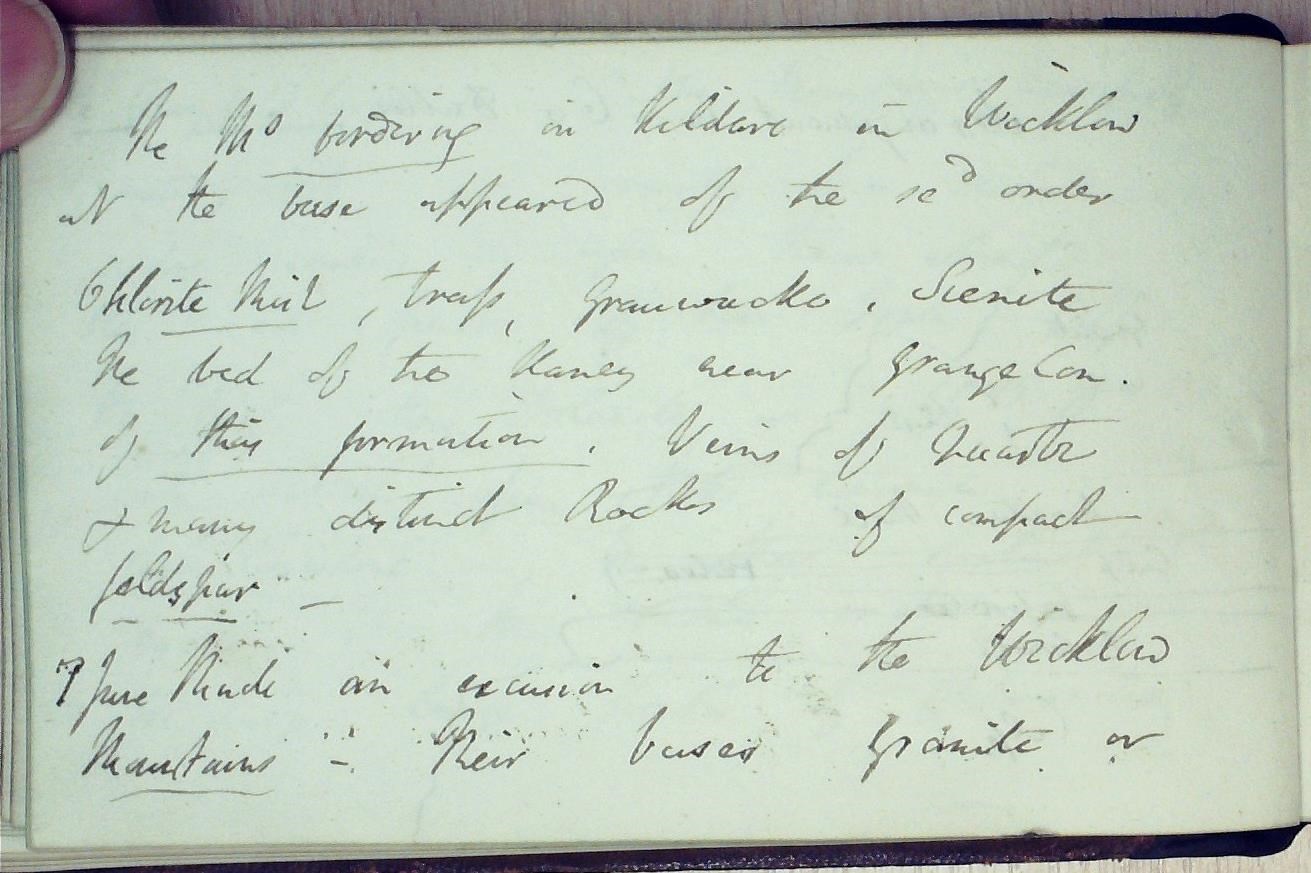 The Mo bordering on Kildare in Wicklow
at the base appeared of the sed order
Chlorite Mica, trap, Grauwacke, Sienite
The bed of the Slaney near Grange Con.
of this formation. Veins of Quartz
& many distinct Rocks of compact
feldspar –
7 June Made an excusion to the Wicklow
Mountains – Their bases granite or